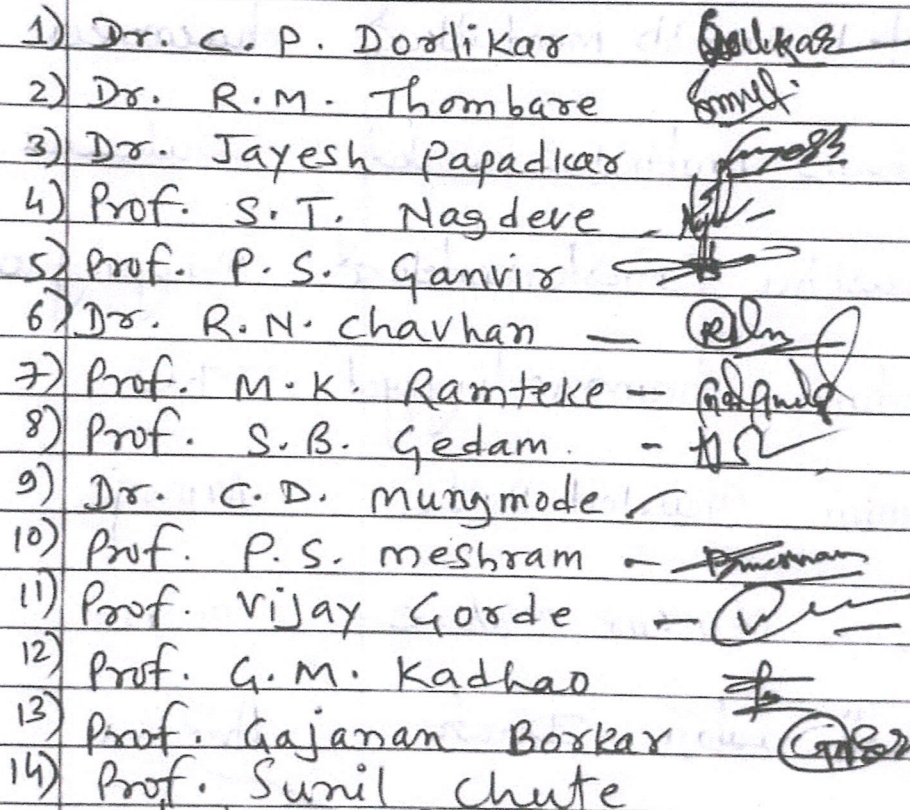 1) Dr. C. P. Dorlikar
2) Dr. R. M. Thombare
3) Dr. Jayesh Papadkar
4) Prof. S. T. Nagdeve
5) Prof. P. S. Ganvir
6) Dr. R. N. Chavhan —
7) Prof. M. K. Ramteke —
8) Prof. S. B. Gedam. -
9) Dr. C. D. Mungmode
10) Prof. P. S. Meshram -
11) Prof. Vijay Gorde -
12) Prof. G. M. Kadhao
13) Prof. Gajanan Borkar
14) Prof. Sunil Chute